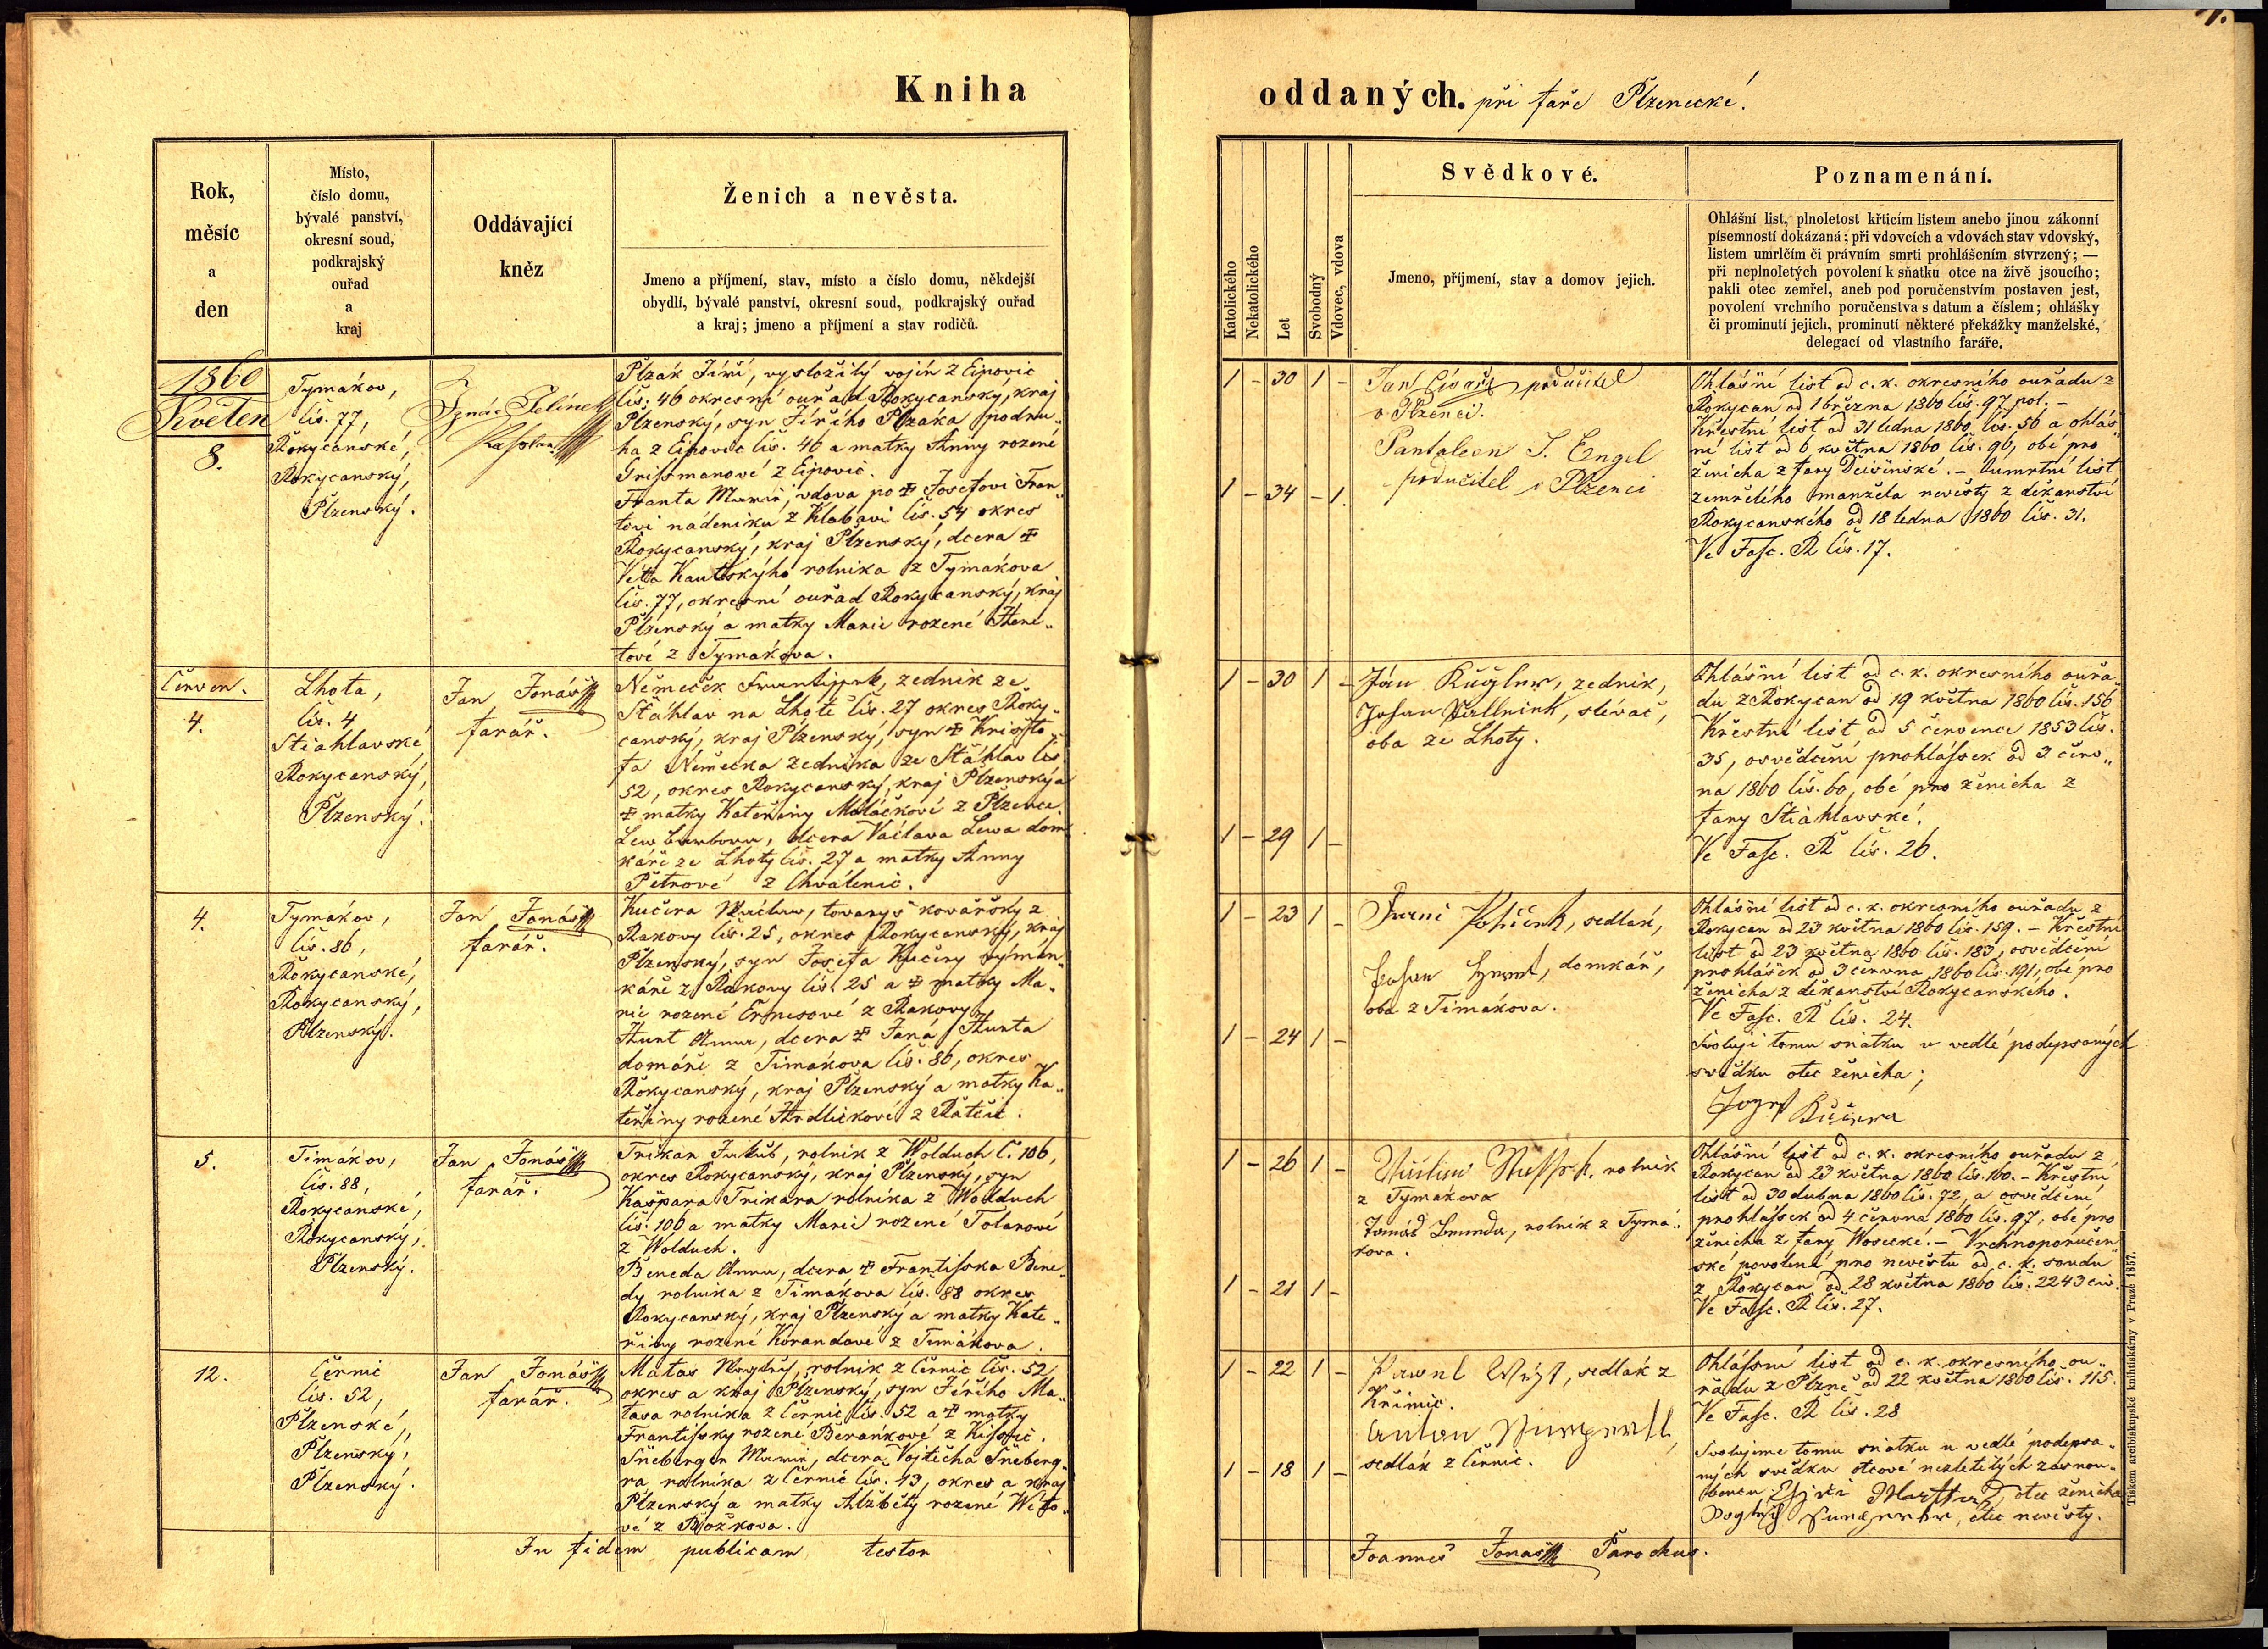 Kniha
Rok,
měsíc
a
den
Místo,
číslo domu,
bývalé panství,
okresní soud,
podkrajský
ouřad
a
kraj
Oddávající
kněz
Ženich a nevěsta.
Jmeno a příjmení, stav, místo a číslo domu, někdejší
obydlí, bývalé panství, okresní soud, podkrajský ouřad
a kraj; jmeno a příjmení a stav rodičů.
1860
Květen
8.
Tymákov,
čís. 77,
Rokycanské,
Rokycanský,
Plzenský.
Ignác Jelínek
Kaplan
Plzák Jiří, vysloužilý vojín z Ejpovic
čís. 46 okresní ouřad Rokycanský, kraj
Plzenský, syn Jiřího Plzáka podru„
ha z Ejpovic čís. 46 a matky Anny rozené
z Ejpovic.
Franta Marie, vdova po ✠ Josefovi Fran„
tovi nádeníku z Klabavi čís. 54 okres
Rokycanský, kraj Plzenský, dcera ✠
Víta Kautského rolníka z Tymákova
čís. 77, okresní ouřad Rokycanský, kraj
Plzenský a matky Marie rozené
tové z Tymákova.
Červen.
4.
Lhota,
čís. 4
Stiahlavské,
Rokycanský,
Plzenský.
Jan Jonáš
farář.
Němeček Frantissek, zedník ze
Štáhlav na Lhotě čís. 27 okres Roky„
canský, kraj Plzenský, syn ✠ Krišto„
fa Němečka zedníka ze Štáhlav čís.
52, okres Rokycanský, kraj Plzenský a
✠ matky Kateřiny Maláčkové z Plzence.
Lew Barbora, dcera Václava Lewa dom„
káře ze Lhoty čís. 27 a matky Anny
Petrové z Chválenic.
4.
Tymákov,
čís. 86,
Rokycanské,
Rokycanský,
Plzenský.
Jan Jonáš
farář.
Kučera Waclaw, tovaryš kovářský z
Rakovy čís. 25, okres Rokycanský, kraj
Plzenský, syn Josefa Kučery
káře z Rakovy čís. 25 a ✠ matky Ma„
rie rozené z Rakovy.
Hunt Anna, dcera ✠ Jana Hunta
domáře z Timákova čís. 86, okres
Rokycanský, kraj Plzenský a matky Ka„
teřiny rozené Hrdličkové z Ratčic.
5.
Timákov,
čís. 88,
Rokycanské,
Rokycanský,
Plzenský.
Jan Jonáš
farář.
Trikar Jakub, rolník z Wolduch č. 106,
okres Rokycanský, kraj Plzenský, syn
Kašpara Trikara rolníka z Wolduch
čís. 106 a matky Marie rozené Tolarové
z Wolduch.
Beneda Anna, dcera ✠ Frantisska Bene„
dy rolníka z Timákova čís. 88 okres
Rokycanský, kraj Plzenský a matky Kate„
řiny rozené Korandové z Timákova.
12.
Černic
čís. 52,
Plzenské,
Plzenský,
Plzenský.
Jan Jonáš
farář.
Matas Wogtěch, rolník z Černic čís. 52
okres a kraj Plzenský, syn Jiřího Ma„
tasa rolníka z Černic čís. 52 a ✠ matky
Frantissky rozené Beránkové z
Šneberger Marie, dcera Vojtěcha Šneberg„
ra rolníka z Černic čís. 43, okres a kraj
Plzenský a matky Alžběty rozené
vé z Božkova.
In fidem publicam testor
oddaných. při faře Plzenecké.
Katolického
Nekatolického
Let
Svobodný
Vdovec, vdova
Svědkové.
Jmeno, příjmení, stav a domov jejich.
Poznamenání.
Ohlášní list, plnoletost křticím listem anebo jinou zákonní
písemností dokázaná; při vdovcích a vdovách stav vdovský,
listem umrlčím či právním smrti prohlášením stvrzený; —
při neplnoletých povolení k sňatku otce na živě jsoucího;
pakli otec zemřel, aneb pod poručenstvím postaven jest,
povolení vrchního poručenstva s datum a číslem; ohlášky
či prominutí jejich, prominutí některé překážky manželské,
delegací od vlastního faráře.
1 – 30 1 –
1 – 34 – 1.
Jan Císař, podučitel
v Plzenci.
Pantaleon J. Engel
podučitel v Plzenci
Ohlášní list od c. k. okresního ouřadu z
Rokycan od 1 března 1860 čís. 97 pol. –
Křestní list od 31 ledna 1860 čís. 56 a ohláš„
ní list od 6 května 1860 čís. 96, obé pro
ženicha z fary Dejšinské. – Oumrtní list
zemřelého manžela nevěsty z děkanství
Rokycanského od 18 ledna 1860 čís. 31.
Ve Fasc. R čís. 17.
1 – 30 1 –
1 – 29 1 –
Ján Kügler, zedník,
Johan, slévač,
oba ze Lhoty.
Ohlášní list od c. k. okresního ouřa„
du z Rokycan od 19 května 1860 čís. 156
Křestní list od 5 července 1853 čís.
35, osvědčení prohlássek od 3 červ„
na 1860 čís. 60, obé pro ženicha z
fary Stiahlavské.
Ve Fasc. R čís. 26.
1 – 23 1 –
1 – 24 1 –
sedlák,
Johan, domkář,
oba z Timákova.
Ohlášní list od c. k. okresního ouřadu z
Rokycan od 23 května 1860 čís. 159. – Křestní
list od 23 května 1860 čís. 183, osvědčení
prohlášek od 3 června 1860 čís. 191, obé pro
ženicha z děkanství Rokycanského.
Ve Fasc. R čís. 24.
Svoluji tomu sňatku u vedlé podepsaných
svědku otec ženicha;
Jozef Kučera
1 – 26 1 –
1 – 21 1 –
rolník
z Tymákova
Tomáš, rolník z Tymá„
kova.
Ohlášní list od c. k. okresního ouřadu z
Rokycan od 23 května 1860 čís. 160. – Křestní
list od 30 dubna 1860 čís. 72, a osvědčení
prohlássek od 4 června 1860 čís. 97, obé pro
ženicha z fary Wosecké. – Vrchnoporučen„
ské povolení pro nevěstu od c. k. soudu
z Rokycan od 28 května 1860 čís. 2243 civ.
Ve Fasc. R čís. 27.
1 – 22 1 –
1 – 18 1 –
Pawel, sedlák z
Křimic.
Anton
sedlák z Černic.
Ohlássní list od c. k. okresního ou„
řadu z Plzně od 22 května 1860 čís. 115.
Ve Fasc. R čís. 28
Svolujeme tomu sňatku u vedlé podepsa„
ných svědku otcové nezletilých zasnou„
bencu Matas, otec ženicha
otec nevěsty.
Joannes Jonáš Parochus.
Tiskem arcibiskupské knihtiskárny v Praze 1857.